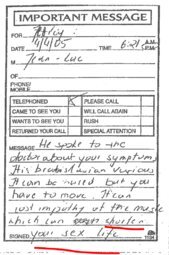 IMPORTANT MESSAGE
FOR
DATE 4/4/05 TIME 6:21 A.M. P.M.
M Jean-Luc
OF
PHONE/
MOBILE
TELEPHONED PLEASE CALL
CAME TO SEE YOU WILL CALL AGAIN
WANTS TO SEE YOU RUSH
RETURNED YOUR CALL SPECIAL ATTENTION
MESSAGE He spoke to the
doctor about your symptoms
It can be but you
have to move. It can
just of the
which can shorten
SIGNED your sex life
1184